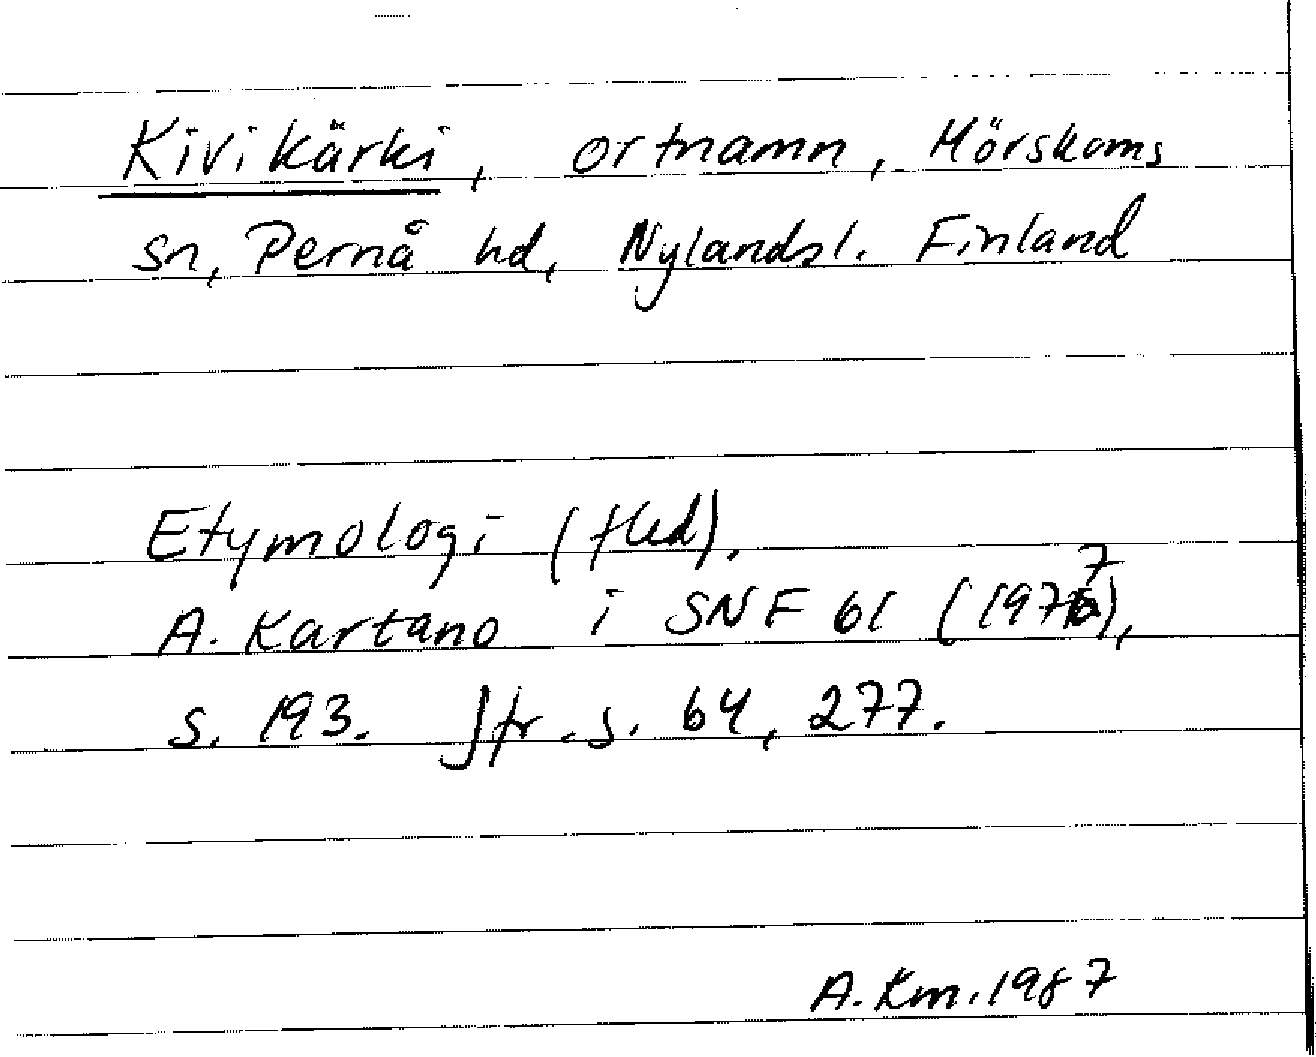 Kivikärki, ortnamn, Mörskoms
sn, Pernå hd, Nylandsl. Finland
Etymologi (fled).
A. Kartano i SNF 61 (1977),
s. 193. Jfr. s. 64, 277.
A. Km. 1987